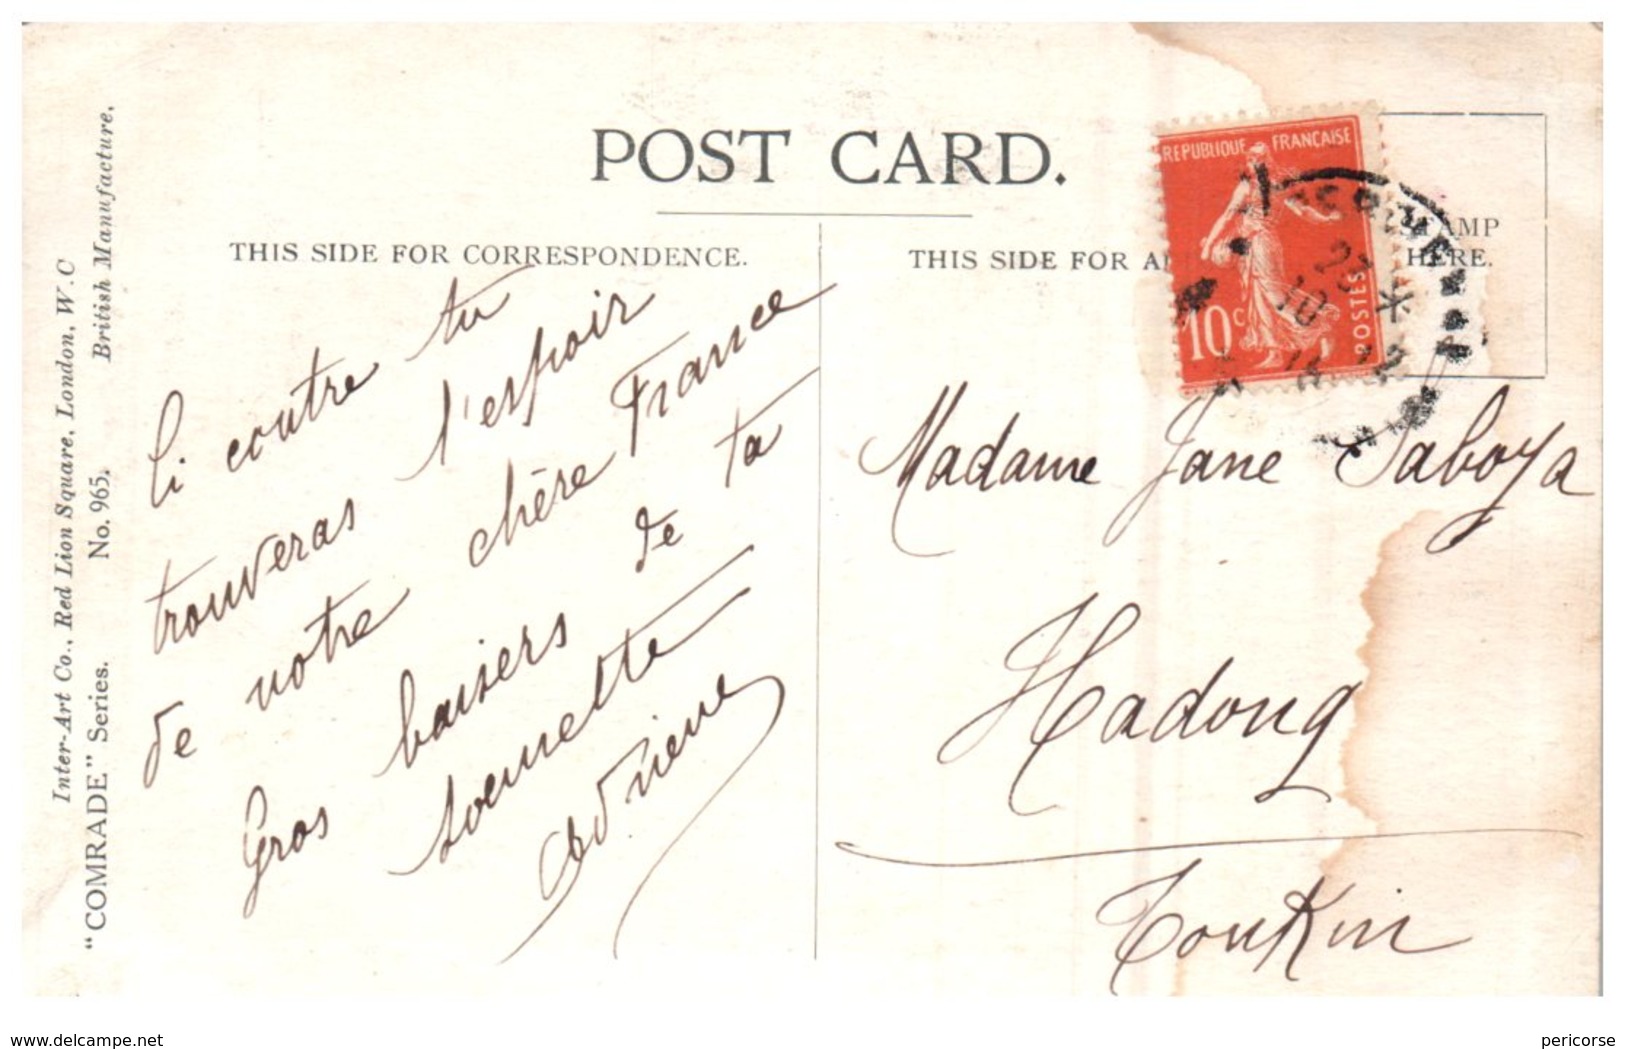 POST CARD.
THIS SIDE FOR CORRESPONDENCE.
THIS SIDE FOR
STAMP
HERE.
REPUBLIQUE FRANÇAISE
POSTES
10c
Inter-Art Co., Red Lion Square, London, W.C
"COMRADE" Series. No. 965. British Manufacture.
Ci contre tu
trouveras l'espoir
de notre chère France
Gros baisers de ta
soeurette
Adrienne
Madame Jane Saboya
Hadong
Tonkin
www.delcampe.net
pericorse